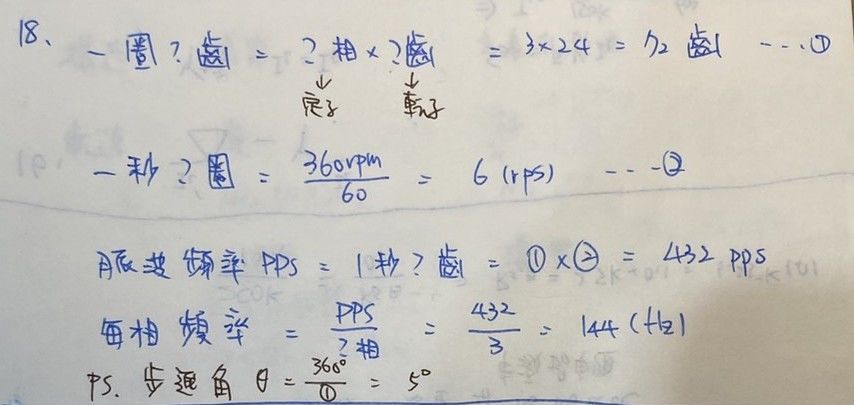 18、一圈?齒 = ?相×?齒 = 3×24 = 72 齒 ---①
↓ ↓
定子 轉子
一秒?圈 = 360rpm/60 = 6 (rps) ---②
脈波頻率 PPS = 1秒?齒 = ①×② = 432 PPS
每相頻率 = PPS/?相 = 432/3 = 144 (Hz)
PS. 步進角 θ = 360°/① = 5°